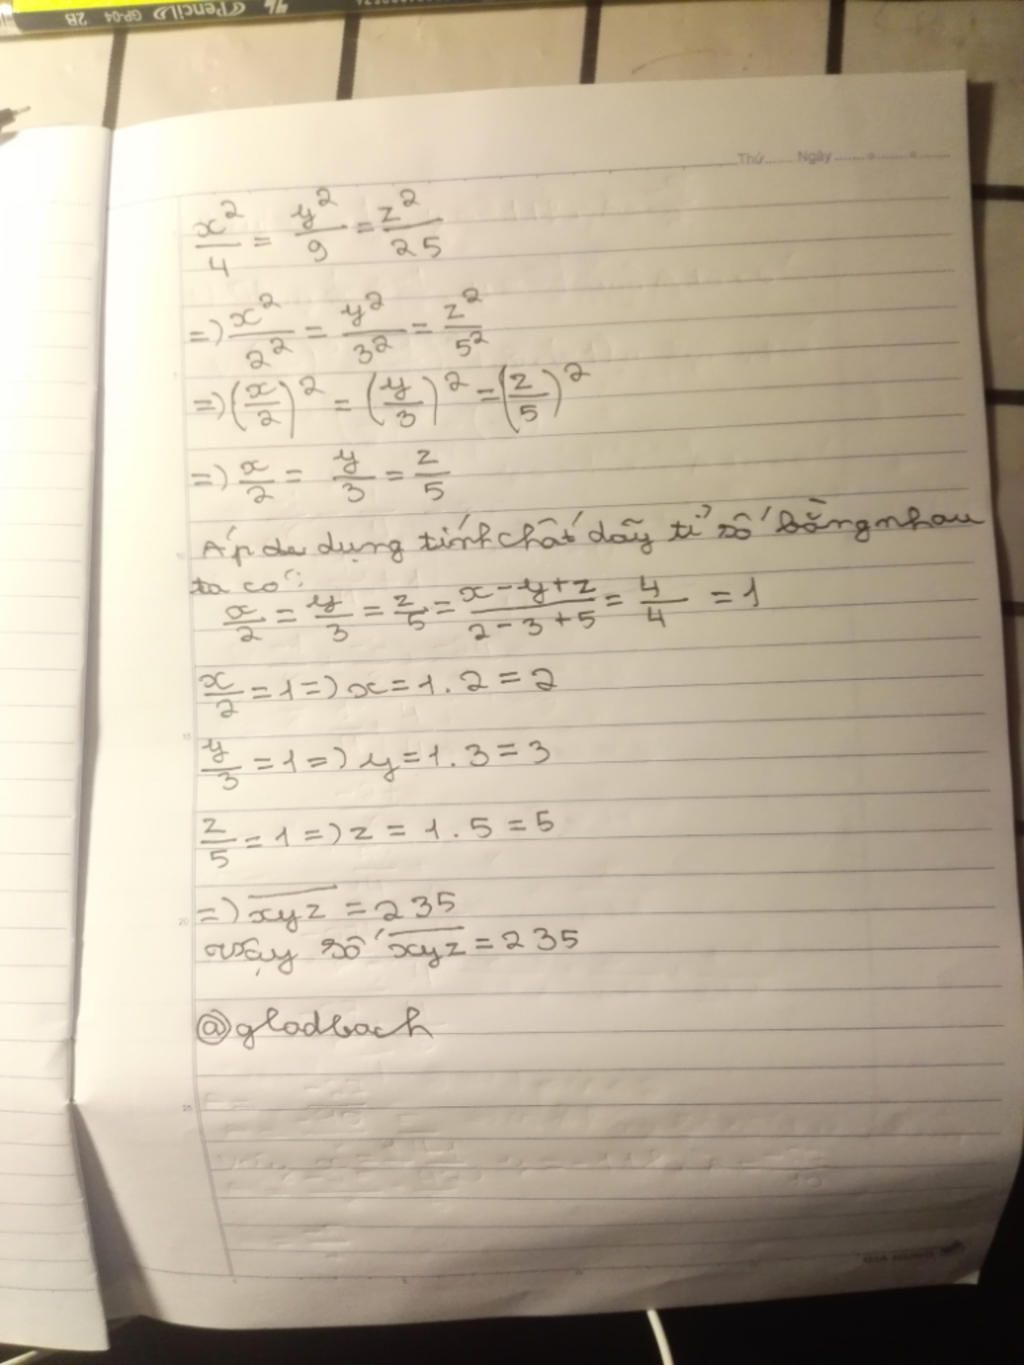 Pencil GP-04 2B
Thứ...... Ngày ..............
x²/4 = y²/9 = z²/25
=) x²/2² = y²/3² = z²/5²
=) (x/2)² = (y/3)² = (z/5)²
=) x/2 = y/3 = z/5
Áp du dụng tính chất dãy tỉ số bằng nhau
ta có:
x/2 = y/3 = z/5 = x-y+z/2-3+5 = 4/4 = 1
x/2 = 1 =) x = 1.2 = 2
y/3 = 1 =) y = 1.3 = 3
z/5 = 1 =) z = 1.5 = 5
=) x̅y̅z̅ = 235
Vậy số x̅y̅z̅ = 235
@gladbach